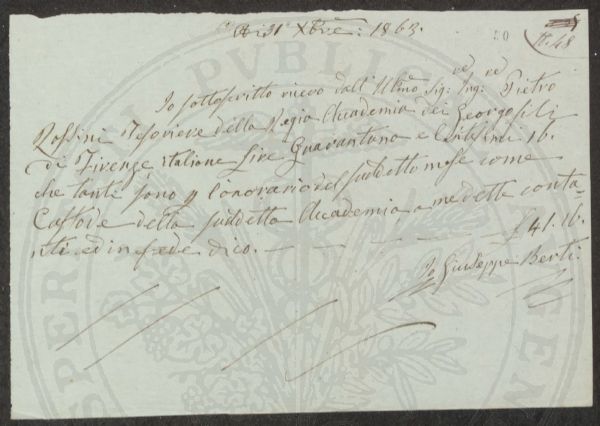 A di 31 Xbre: 1863.
N. 48
Io sottoscritto ricevo dall' Illmo Sig: Ing: Pietro
Rossini Tesoriere della Regia Accademia dei Georgofili
di Firenze, Italiane Lire Quarantuno e Centesimi 16.
che tante sono p l'onorario del suddetto mese come
Custode della suddetta Accademia a me dette conta-
nti ed in fede dico. £ 41. 16.
Io Giuseppe Berti.